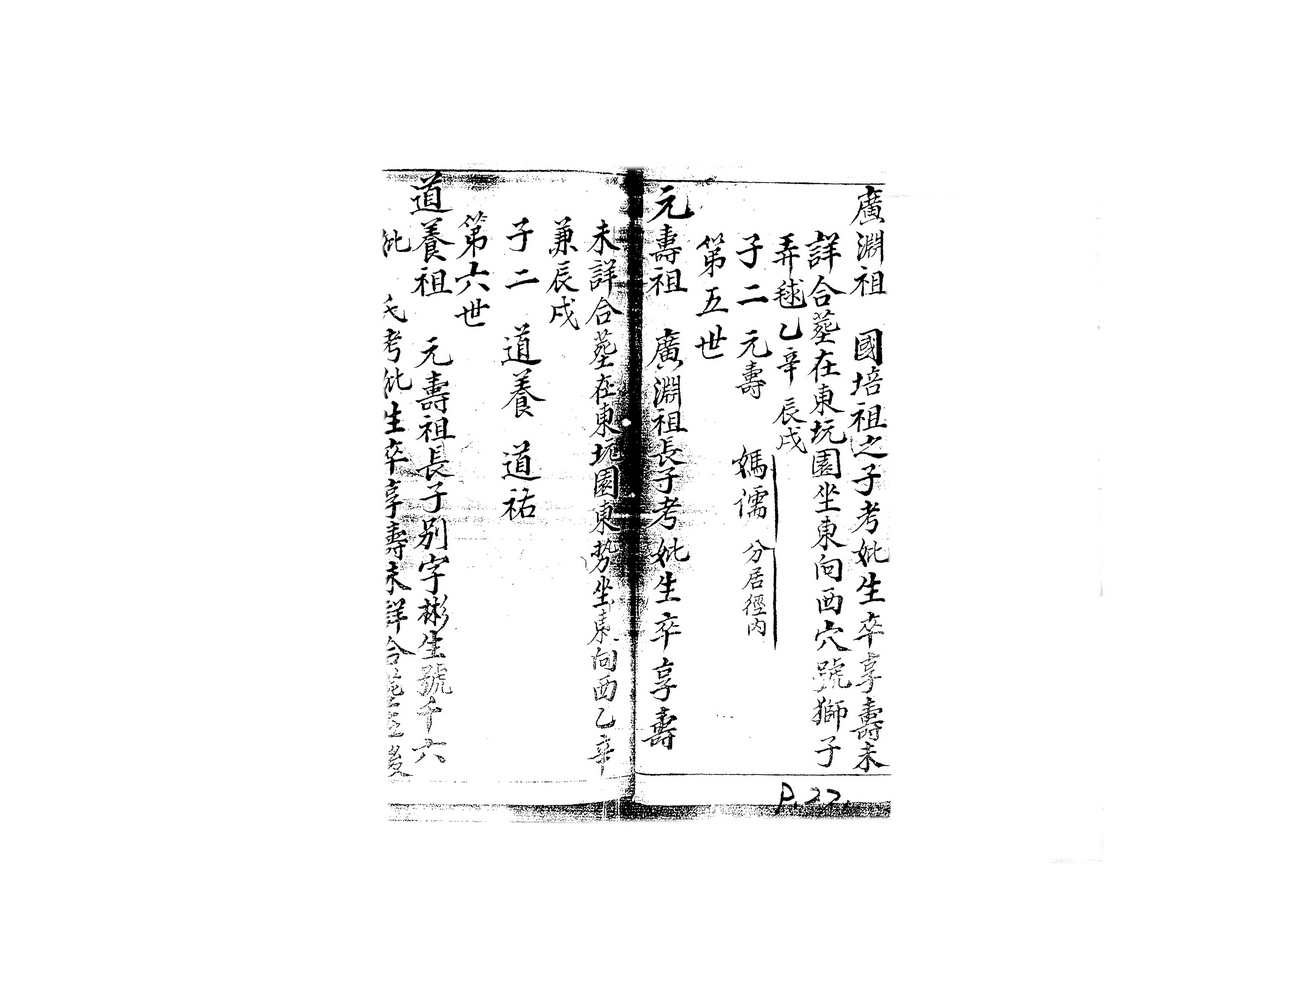 廣淵祖 國培祖之子考妣生卒享壽未
詳合墓在東坑園坐東向西穴號獅子
弄毬乙辛辰戌
子二 元壽 媽儒 分居徑內
第五世
元壽祖 廣淵祖長子考妣生卒享壽
未詳合墓在東坑園東勢坐東向西乙辛
兼辰戌
子二 道養 道祐
第六世
道養祖 元壽祖長子別字彬生號千六
妣 氏考妣生卒享壽未詳合
P.27.